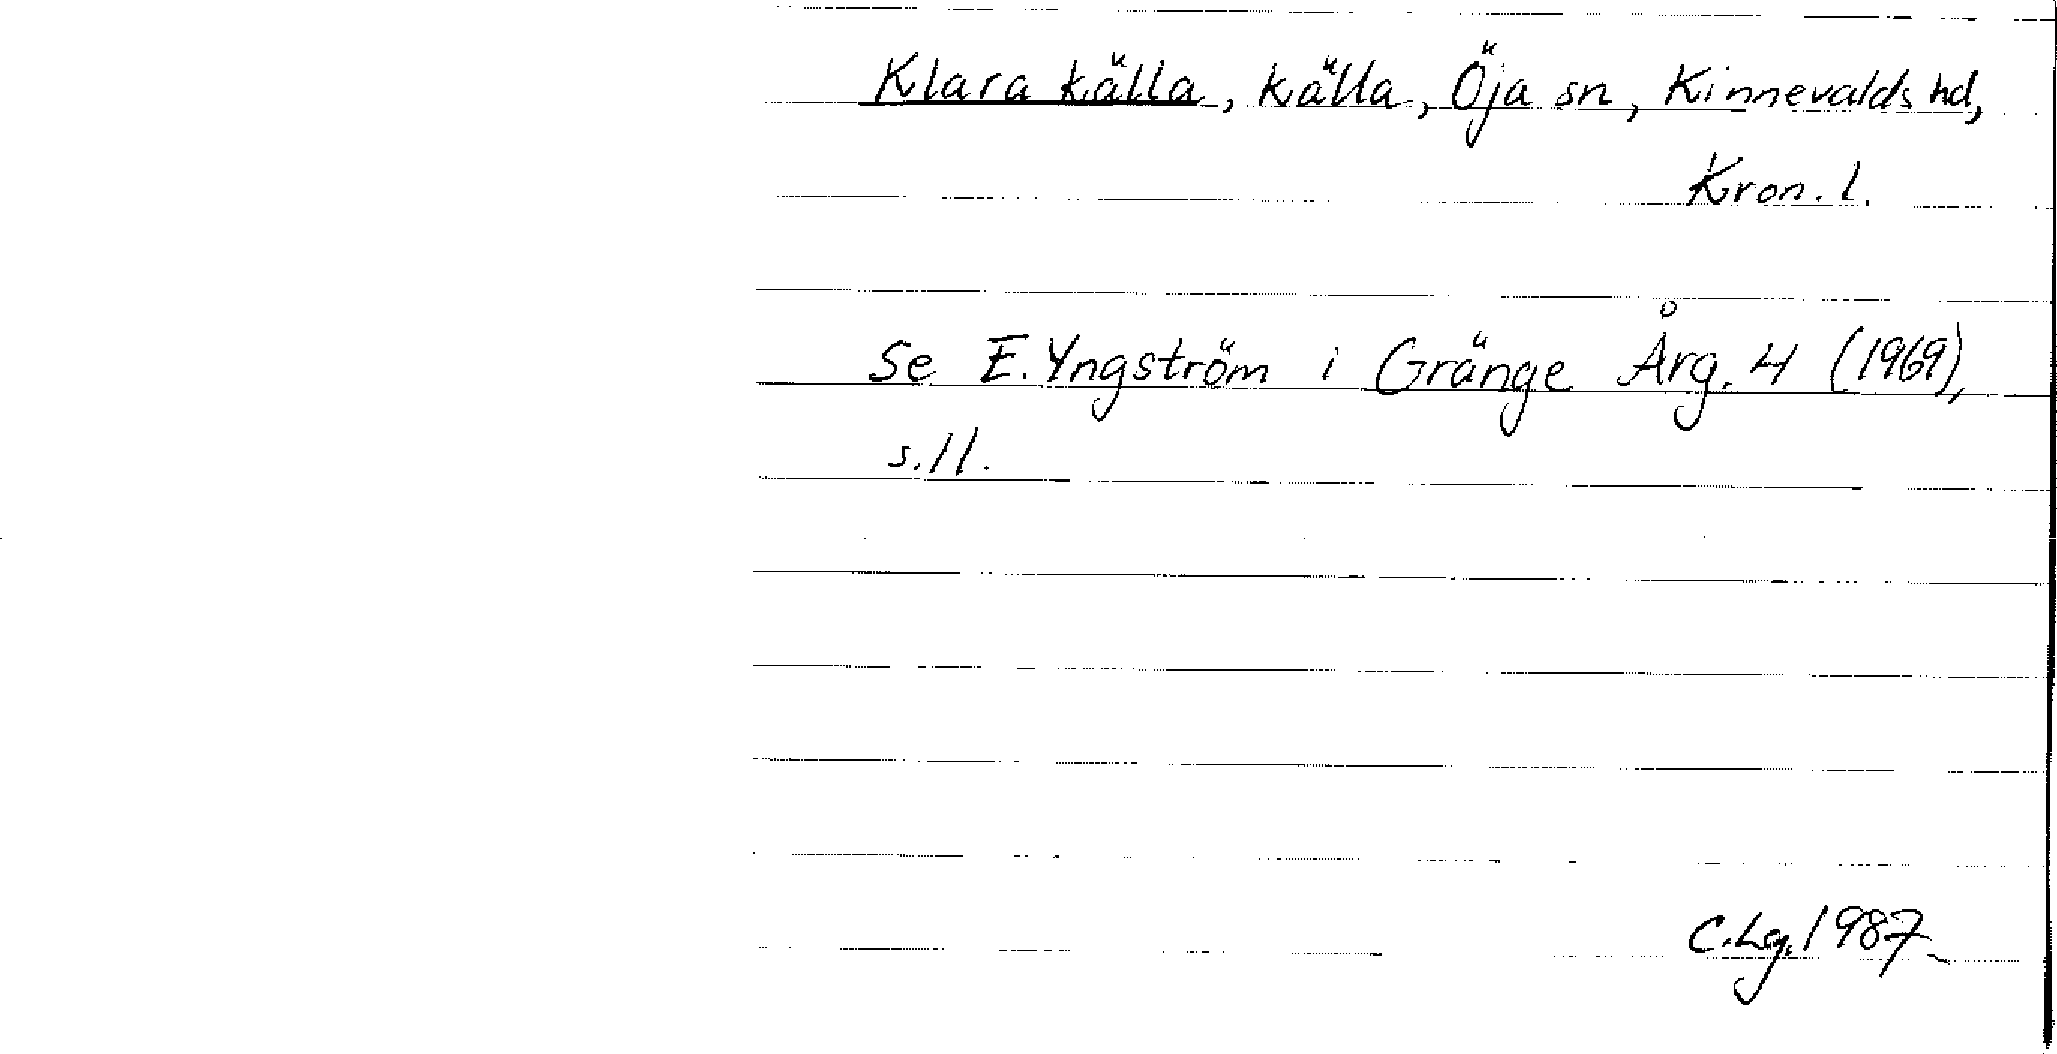 Klara källa, källa, Öja sn, Kinnevalds hd,
Kron. l.
Se E. Yngström i Gränge Årg. 4 (1969),
s. 11.
C. Lg. 1987